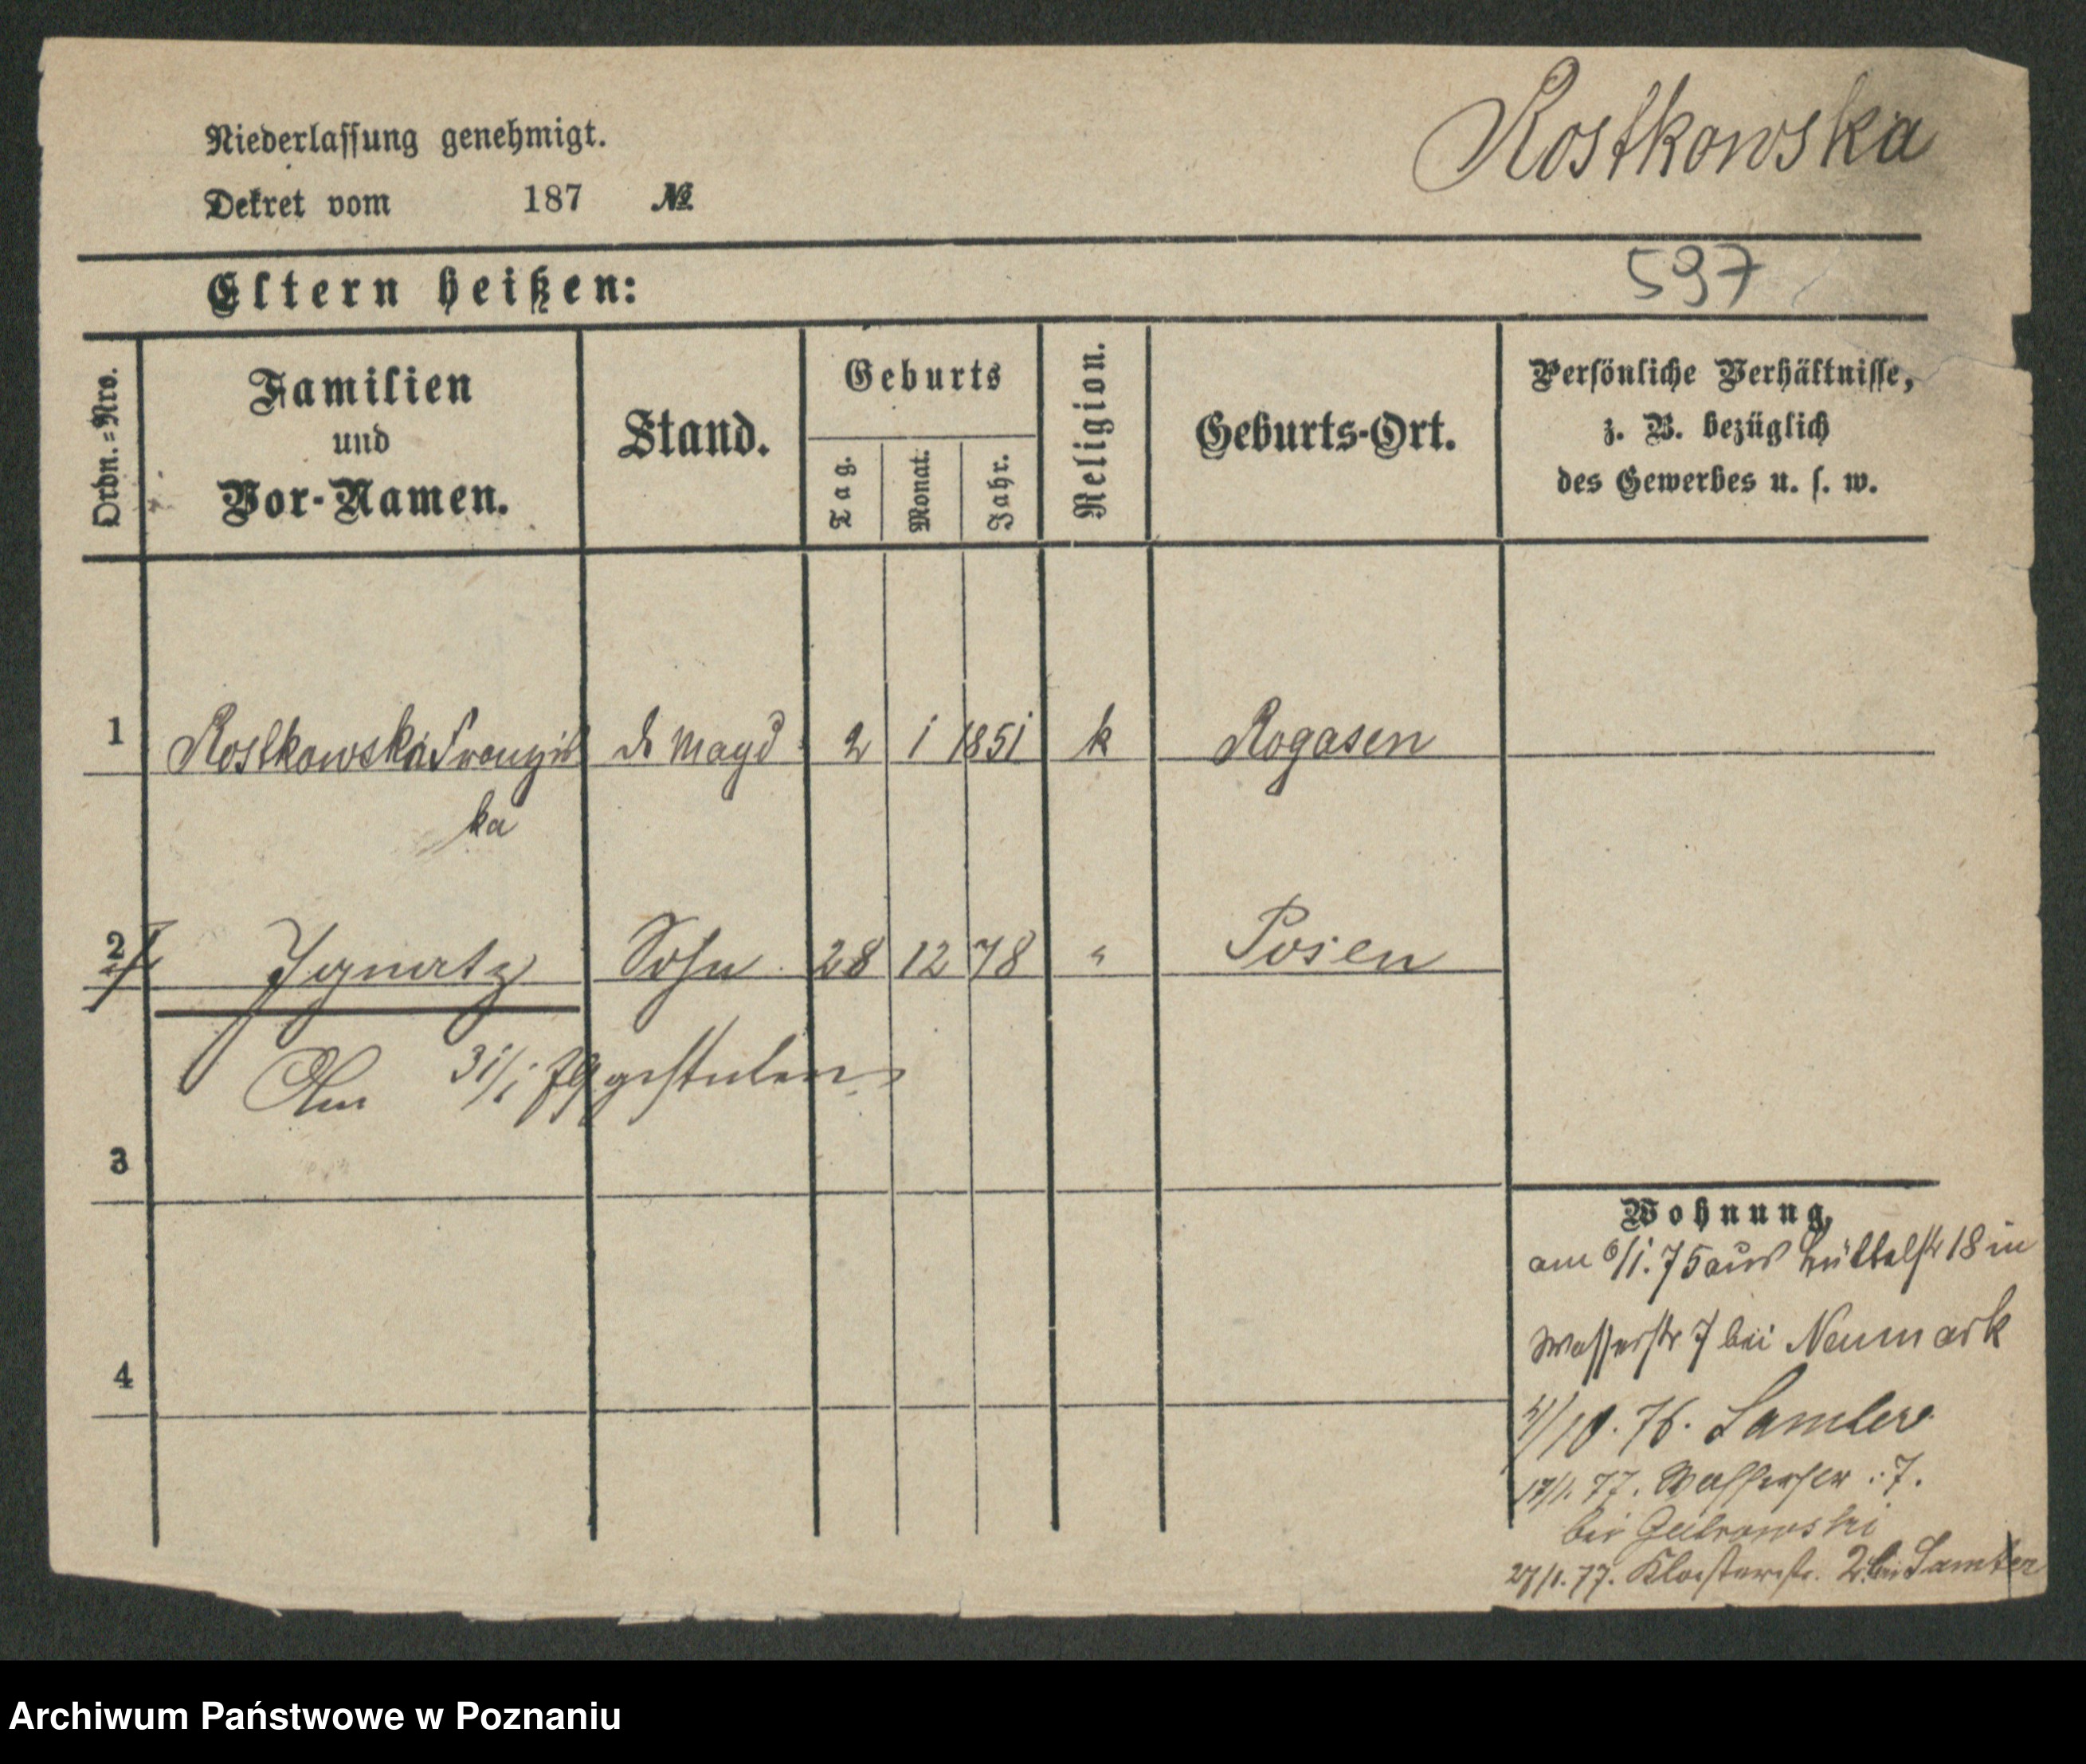 Rostkowska
Niederlassung genehmigt.
Dekret vom 187 №
597
Eltern heißen:
Ordn.=Nro.
Familien
und
Vor-Namen.
Stand.
Geburts
Tag.
Monat.
Jahr.
Religion.
Geburts-Ort.
Persönliche Verhältnisse,
z. B. bezüglich
des Gewerbes u. s. w.
1 Rostkowska Franzis d. Magd 2 1 1851 k Rogasen
ka
2 Ignatz Sohn 28 12 78 " Posen
Am 31/1 79 gestorben
3
4
Wohnung,
am 6/1. 75 aus 18 in
Wasserstr 7 bei Neumark
4/10. 76. Samter
17/1. 77. Wasserstr. 7.
bei
27/1. 77. Klosterstr. 2 bei Samter
Archiwum Państwowe w Poznaniu